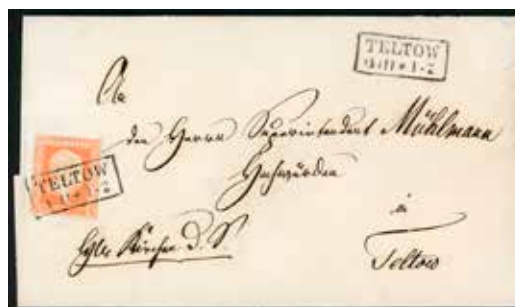 TELTOW
An
den Herrn Superintendent Mühlmann
Hochwürden
TELTOW
in
Kirchen d. S.
Teltow